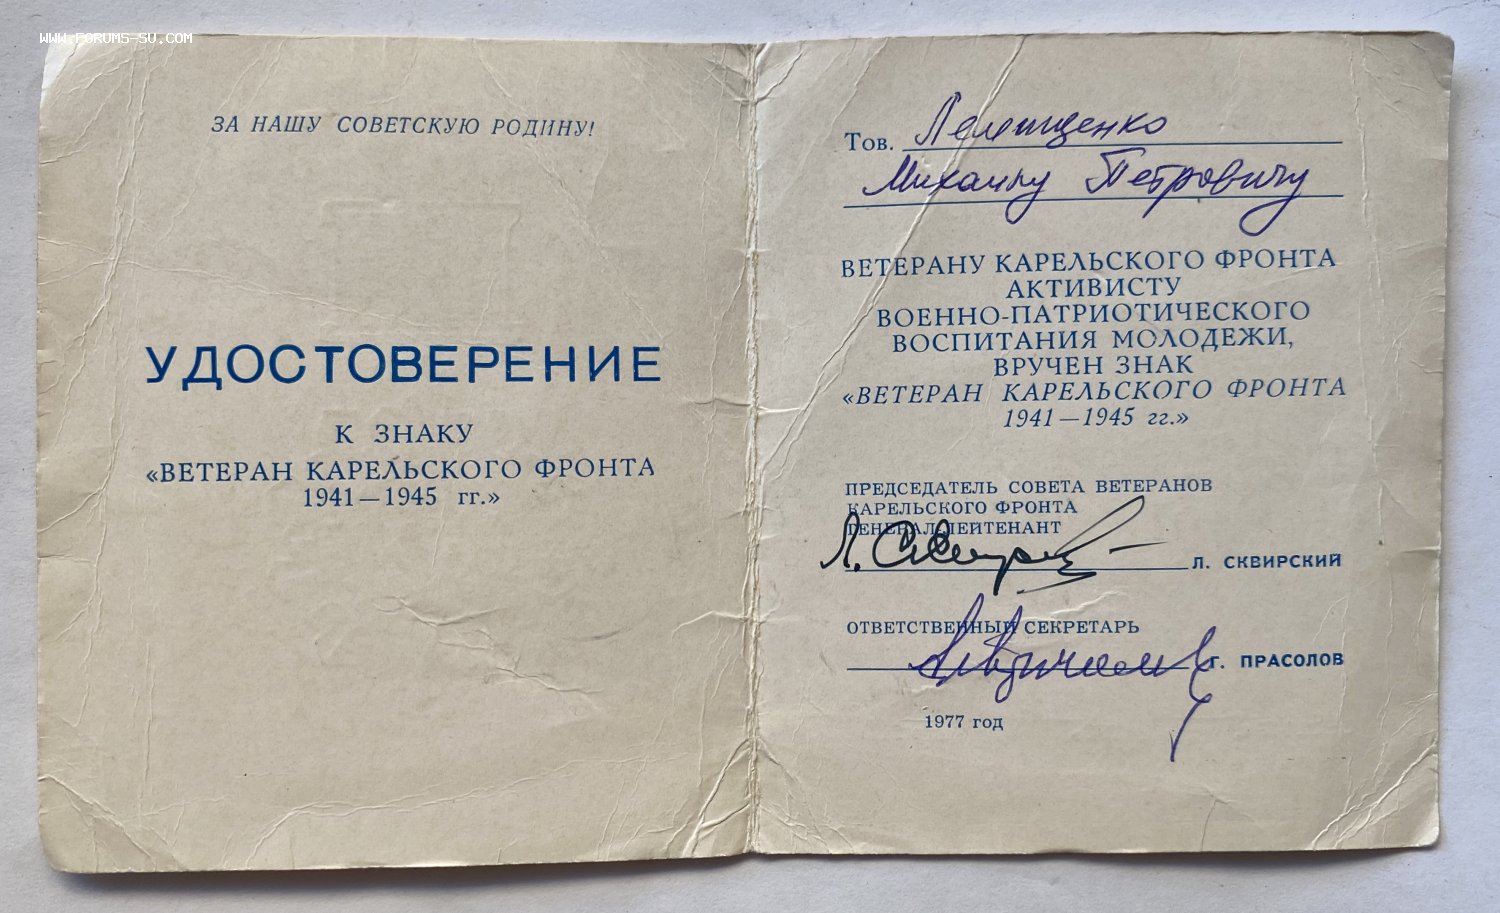 WWW.FORUMS-SU.COM
ЗА НАШУ СОВЕТСКУЮ РОДИНУ!
УДОСТОВЕРЕНИЕ
К ЗНАКУ
«ВЕТЕРАН КАРЕЛЬСКОГО ФРОНТА
1941—1945 гг.»
Тов.
Михаилу Петровичу
ВЕТЕРАНУ КАРЕЛЬСКОГО ФРОНТА
АКТИВИСТУ
ВОЕННО-ПАТРИОТИЧЕСКОГО
ВОСПИТАНИЯ МОЛОДЕЖИ,
ВРУЧЕН ЗНАК
«ВЕТЕРАН КАРЕЛЬСКОГО ФРОНТА
1941—1945 гг.»
ПРЕДСЕДАТЕЛЬ СОВЕТА ВЕТЕРАНОВ
КАРЕЛЬСКОГО ФРОНТА
ГЕНЕРАЛ-ЛЕЙТЕНАНТ
Л. СКВИРСКИЙ
ОТВЕТСТВЕННЫЙ СЕКРЕТАРЬ
Г. ПРАСОЛОВ
1977 год